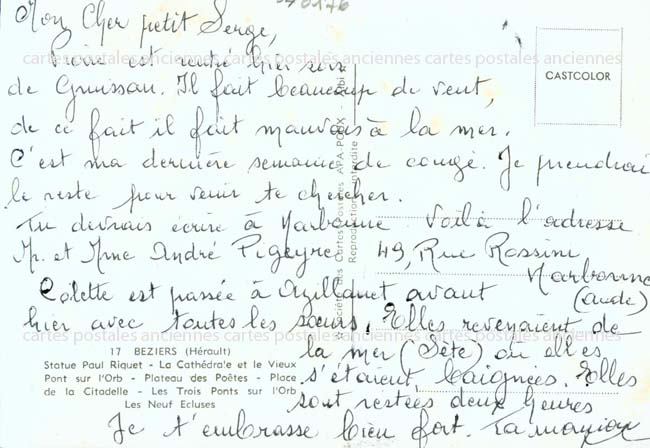 Mon Cher petit Serge,
est rentré hier soir
de Gruissan. Il fait beaucoup de vent,
de ce fait il fait mauvais à la mer.
C'est ma dernière semaine de congé. Je prendrai
le reste pour venir te chercher.
Tu devrais écrire à Narbonne voilà l'adresse
Mr. et Mme André Pigeyre 49, Rue Rossini
Narbonne
(Aude)
Colette est passée à Azillanet avant
hier avec toutes les sœurs. Elles revenaient de
la mer (Sète) où elles
s'étaient baignées. Elles
sont restées deux heures
Je t'embrasse bien fort. Ta
CASTCOLOR
cartes postales anciennes cartes postales anciennes cartes postales anciennes
cartes postales anciennes cartes postales anciennes cartes postales anciennes
17 BEZIERS (Hérault)
Statue Paul Riquet - La Cathédrale et le Vieux
Pont sur l'Orb - Plateau des Poètes - Place
de la Citadelle - Les Trois Ponts sur l'Orb
Les Neuf Ecluses
Société des Cartes Postales APA-POUX - Albi
Reproduction Interdite